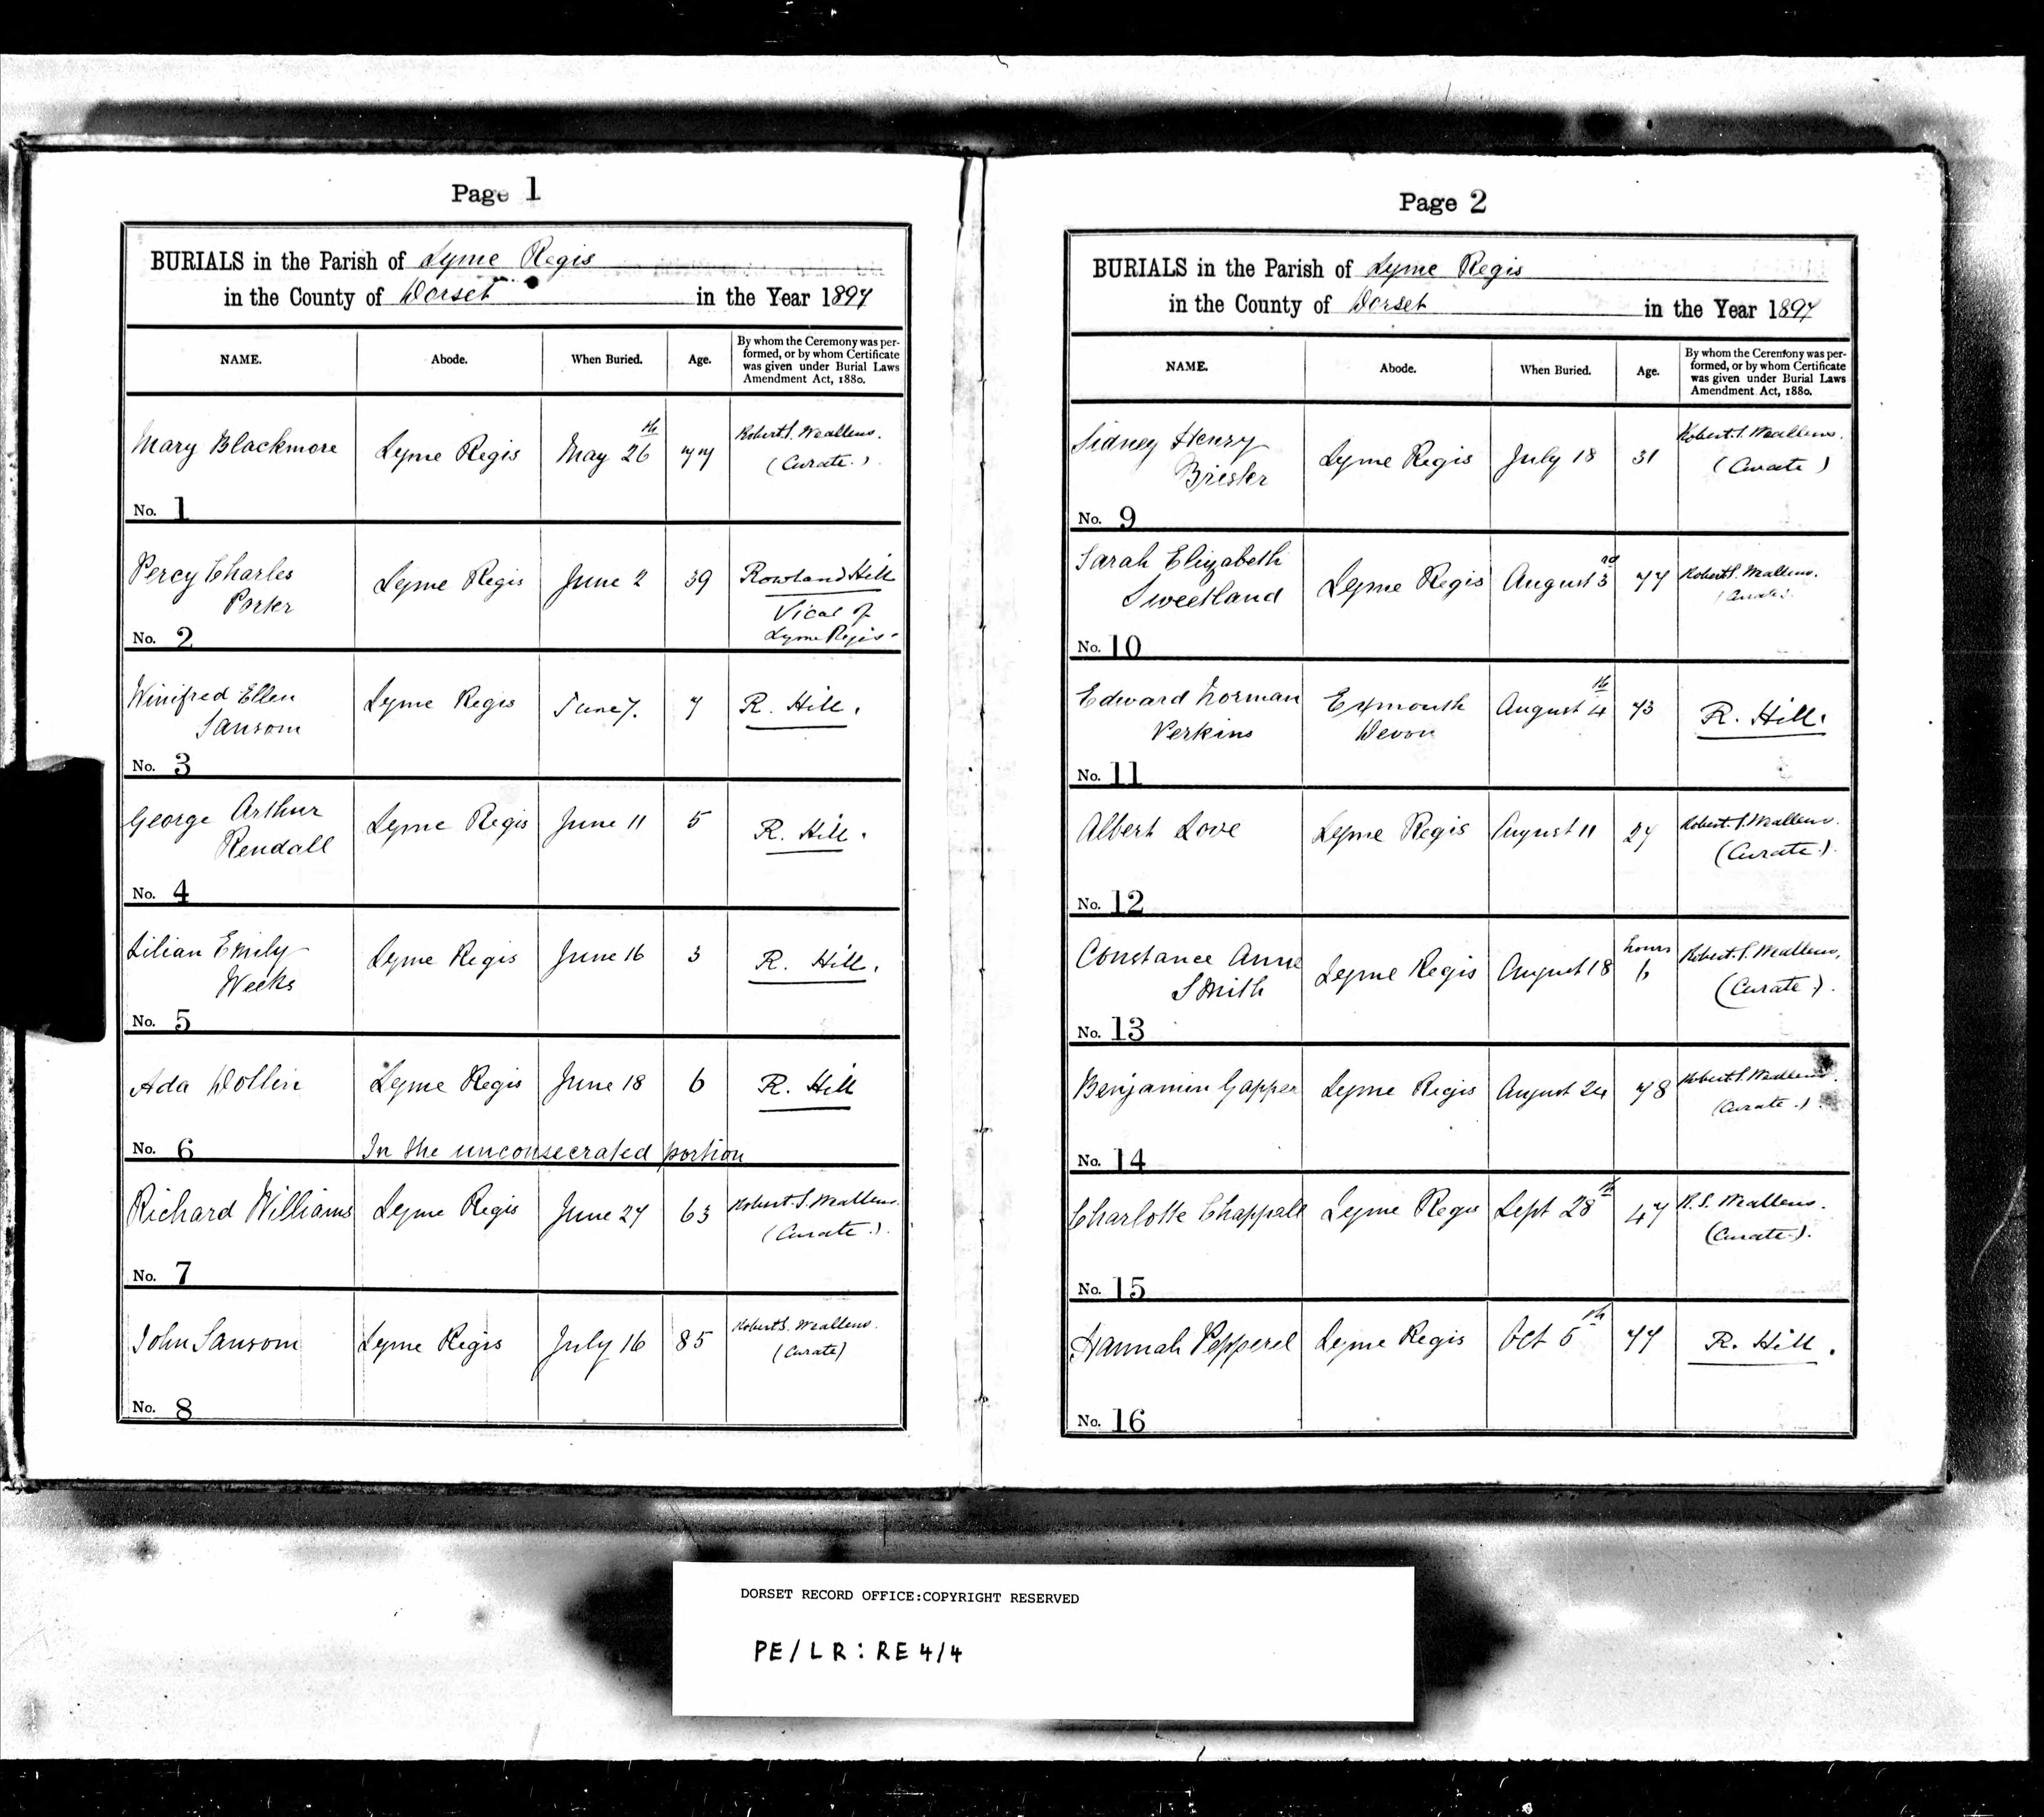 Page 1
BURIALS in the Parish of Lyme Regis
in the County of Dorset in the Year 1897
NAME. Abode. When Buried. Age. By whom the Ceremony was per-
formed, or by whom Certificate
was given under Burial Laws
Amendment Act, 1880.
Mary Blackmore Lyme Regis May 26th 77 Robert S. Weallens.
(Curate.)
No. 1
Percy Charles Lyme Regis June 2 39 Rowland Hill
Porter Vicar of
No. 2 Lyme Regis
Winifred Ellen Lyme Regis June 7. 7 R. Hill.
Sansom
No. 3
George Arthur Lyme Regis June 11 5 R. Hill.
Rendall
No. 4
Lilian Emily Lyme Regis June 16 3 R. Hill.
Weeks
No. 5
Ada Dollin Lyme Regis June 18 6 R. Hill
No. 6 In the unconsecrated portion
Richard Williams Lyme Regis June 27 63 Robert S. Weallens.
(Curate.).
No. 7
John Sansom Lyme Regis July 16 85 Robert S. Weallens.
(Curate)
No. 8
Page 2
BURIALS in the Parish of Lyme Regis
in the County of Dorset in the Year 1897
NAME. Abode. When Buried. Age. By whom the Ceremony was per-
formed, or by whom Certificate
was given under Burial Laws
Amendment Act, 1880.
Sidney Henry Lyme Regis July 18 31 Robert S. Weallens.
Brister (Curate)
No. 9
Sarah Elizabeth Lyme Regis August 3rd 77 Robert S. Weallens.
Sweetland (Curate).
No. 10
Edward Norman Exmouth August 4th 73 R. Hill.
Perkins Devon
No. 11
Albert Love Lyme Regis August 11 27 Robert S. Weallens.
(Curate.).
No. 12
Constance Anne Lyme Regis August 18 hours 6 Robert S. Weallens,
Smith (Curate.).
No. 13
Benjamin Gapper Lyme Regis August 24 78 Robert S. Weallens.
(Curate.).
No. 14
Charlotte Chappell Lyme Regis Sept 28th 47 R. S. Weallens.
(Curate.).
No. 15
Hannah Pepperel Lyme Regis Oct 5th 77 R. Hill.
No. 16
DORSET RECORD OFFICE:COPYRIGHT RESERVED
PE/LR:RE 4/4